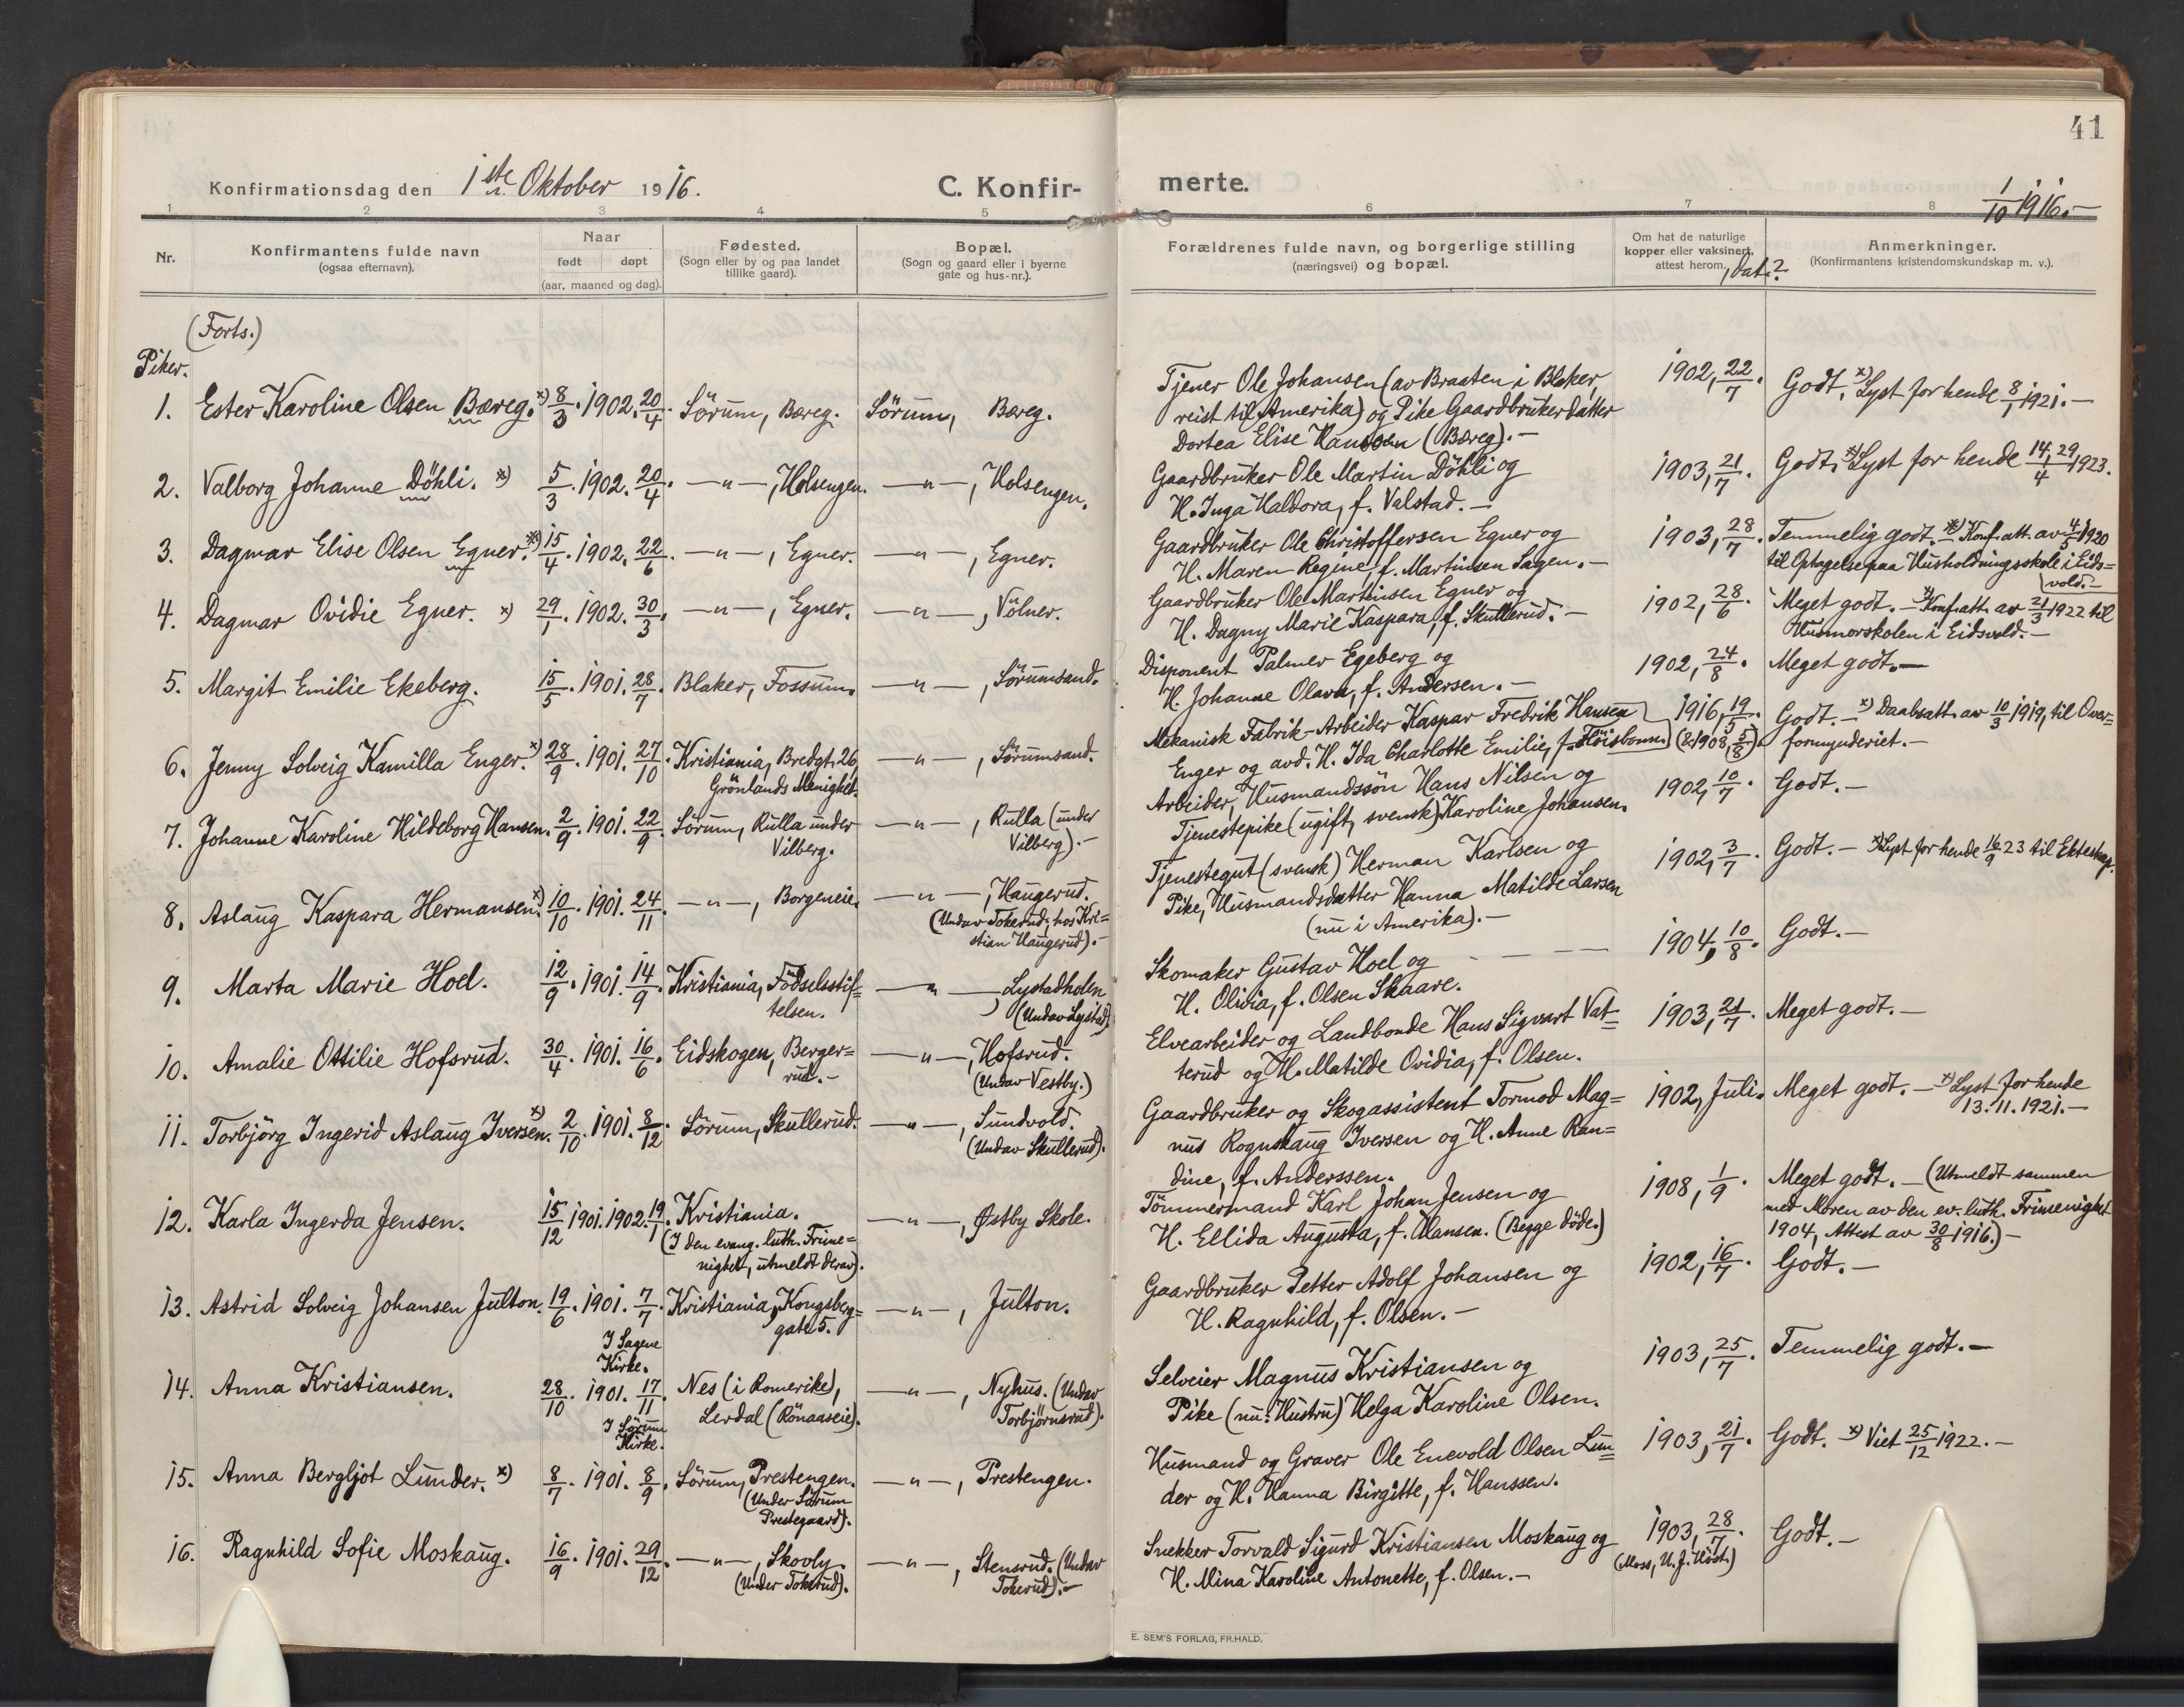 41
Konfirmationsdag den 1ste Oktober 1916.
C. Konfirmerte.
1/10 1916.-
1 2 3 4 5 6 7 8
Nr.
Konfirmantens fulde navn
(ogsaa efternavn).
Naar
født døpt
(aar, maaned og dag).
Fødested.
(Sogn eller by og paa landet
tillike gaard).
Bopæl.
(Sogn og gaard eller i byerne
gate og hus-nr.).
Forældrenes fulde navn, og borgerlige stilling
(næringsvei) og bopæl.
Om hat de naturlige
kopper eller vaksinert,
attest herom, dat.?
Anmerkninger.
(Konfirmantens kristendomskundskap m. v.).
(Forts.)
Piker.
1. Ester Karoline Olsen Bæreg. *) 8/3. 1902. 20/4. Sörum, Bæreg. Sörum, Bæreg.
Tjener Ole Johansen (av Braaten i Blaker,
reist til Amerika) og Pike Gaardbrukerdatter
Dortea Elise Hanssen (Bæreg).-
1902, 22/7. Godt. *) Lyst for hende 8/1 1921.-
2. Valborg Johanne Döhli. *) 5/3. 1902. 20/4. -"-, Holsengen. -"-, Holsengen.
Gaardbruker Ole Martin Döhli og
H. Inga Haldora, f. Valstad.-
1903, 21/7. Godt. *) Lyst for hende 14,29/4 1923.
3. Dagmar Elise Olsen Egner. *) 15/4. 1902. 22/6. -"-, Egner. -"-, Egner.
Gaardbruker Ole Christoffersen Egner og
H. Maren Regine, f. Martinsen Sagen.-
1903, 28/7. Temmelig godt. *) Konf.att. av 4/5 1920
til Optagelse paa Husholdningsskole i Eids=
vold.-
4. Dagmar Ovidie Egner. *) 29/1. 1902. 30/3. -"-, Egner. -"-, Völner.
Gaardbruker Ole Martinsen Egner og
H. Dagny Marie Kaspara, f. Skullerud.-
1902, 28/6. Meget godt.- *) Konf.att. av 21/3 1922 til
Husmorskolen i Eidsvold.-
5. Margit Emilie Ekeberg. 15/5. 1901. 28/7. Blaker, Fossum. -"-, Sörumsand.
Disponent Palmer Egeberg og
H. Johanne Olava, f. Andersen.-
1902, 24/8. Meget godt.-
6. Jenny Solveig Kamilla Enger. *) 28/9. 1901. 27/10. Kristiania, Bredgt. 26, -"-, Sörumsand.
Grönlands Menighet.
Mekanisk Fabrik-Arbeider Kaspar Fredrik Hansen
Enger og avd. H. Ida Charlotte Emilie, f. Höisbonn.
1916, 19/5. (& 1908, 5/8). Godt.- *) Daabsatt. av 10/3 1919, til Over=
formynderiet.-
7. Johanne Karoline Hildeborg Hansen. 2/9. 1901. 22/9. Sörum, Rulla under -"-, Rulla (under
Vilberg. Vilberg).-
Arbeider, Husmandssön Hans Nilsen og
Tjenestepike (ugift, svensk) Karoline Johansen.
1902, 10/7. Godt.-
8. Aslaug Kaspara Hermansen. *) 10/10. 1901. 24/11. -"-, Borgeneie. -"-, Haugerud.
(Undav Tokerud; hos Kri=
stian Haugerud).-
Tjenestegut (svensk) Herman Karlsen og
Pike, Husmandsdatter Hanna Matilde Larsen
(nu i Amerika).-
1902, 3/7. Godt.- *) Lyst for hende 16/9 23 til Ekteskap.
9. Marta Marie Hoel. 12/9. 1901. 14/9. Kristiania, Födselsstif= -"-, Lystadholen
telsen. (Undav Lystad)
Skomaker Gustav Hoel og
H. Olivia, f. Olsen Skaare.
1904, 10/8. Godt.-
10. Amalie Ottilie Hofsrud. 30/4. 1901. 16/6. Eidskogen, Berger= -"-, Hofsrud.
rud.- (Undav Vestby.)
Elvearbeider og Landbonde Hans Sigvart Vat=
terud og H. Matilde Ovidia, f. Olsen.
1903, 21/7. Meget godt.-
11. Torbjörg Ingerid Aslaug Iversen. *) 2/10. 1901. 8/12. Sörum, Skullerud. -"-, Sundvold.
(Undav Skullerud).
Gaardbruker og Skogassistent Tormod Mag=
nus Rognskaug Iversen og H. Anne Ran=
dine, f. Anderssen.
1902, Juli. Meget godt.- *) Lyst for hende
13.11.1921.-
12. Karla Ingerda Jensen. 15/12 1901. 1902. 19/1. Kristiania. -"-, Østby Skole.
(I den evang. luth. Frime=
nighet, utmeldt derav).
Tömmermand Karl Johan Jensen og
H. Ellida Augusta, f. Hansen. (Begge döde.)
1908, 1/9. Meget godt.- (Utmeldt sammen
med Moren av den ev. luth. Frimenighet
1904, Attest av 30/8 1916.)-
13. Astrid Solveig Johansen Julton. 19/6. 1901. 7/7. Kristiania, Kongsberg= -"-, Julton.
gate 5.
I Sagene
Kirke.
Gaardbruker Petter Adolf Johansen og
H. Ragnhild, f. Olsen.-
1902, 16/7. Godt.-
14. Anna Kristiansen. 28/10. 1901. 17/11. Nes (i Romerike), -"-, Nyhus. (Undav
Lerdal (Rönaaseie). Torbjörnsrud).
I Sörum
Kirke.
Selveier Magnus Kristiansen og
Pike (nu: Hustru) Helga Karoline Olsen.
1903, 25/7. Temmelig godt.-
15. Anna Bergljot Lunder. *) 8/7. 1901. 8/9. Sörum, Prestengen. -"-, Prestengen.
(Under Sörum
Prestegaard).
Husmand og Graver Ole Enevold Olsen Lun=
der og H. Hanna Birgitte, f. Hanssen.
1903, 21/7. Godt. *) Viet 25/12 1922.-
16. Ragnhild Sofie Moskaug. 16/9. 1901. 29/12. -"-, Skovly. -"-, Stensrud. (Undav
(Under Tokerud). Tokerud).-
Snekker Torvald Sigurd Kristiansen Moskaug og
H. Mina Karoline Antonette, f. Olsen.-
1903, 28/7. Godt.-
(Moss, U. J. Höst.)
E. SEM'S FORLAG, FR.HALD.